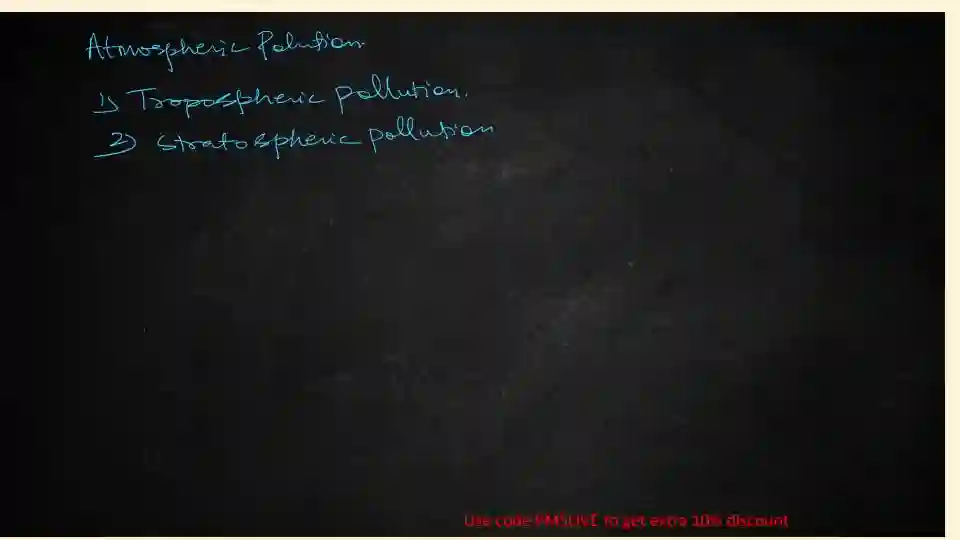 Atmospheric Pollution
1) Tropospheric pollution.
2) Stratospheric pollution
Use code to get extra 10% discount